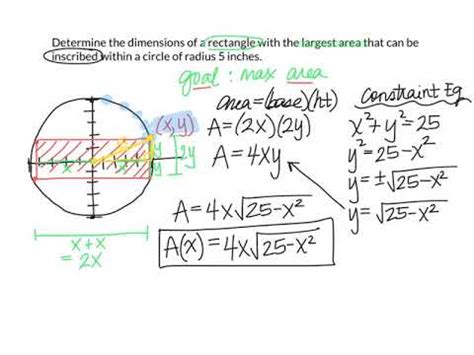 Determine the dimensions of a rectangle with the largest area that can be
inscribed within a circle of radius 5 inches.
goal : max area
area=(base)(ht)
A=(2x)(2y)
A=4xy
Constraint Eq
x²+y²=25
y²=25-x²
y=±√25-x²
y=√25-x²
(x,y)
y
y
2y
x
x
x+x
=2x
A=4x√25-x²
A(x)=4x√25-x²